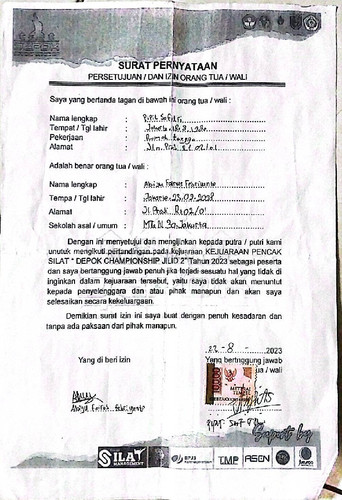 SURAT PERNYATAAN
PERSETUJUAN / DAN IZIN ORANG TUA / WALI
Saya yang bertanda tagan di bawah ini orang tua / wali :
Nama lengkap :
Tempat / Tgl lahir : Jakarta
Pekerjaan : Rumah tangga
Alamat : Jln. Prof. Rt 02/01
Adalah benar orang tua / wali :
Nama lengkap :
Tempa / Tgl lahir : Jakarta 23.02.2008
Alamat : Rt 02/01
Sekolah asal / umum : MTs N 30 Jakarta
Dengan ini menyetujui dan mengijinkan kepada putra / putri kami
uncuk mengikuti pertandingan pada kejuaraan KEJUARAAN PENCAK
SILAT " DEPOK CHAMPIONSHIP JILID 2" Tahun 2023 sebagai peserta
dan saya bertanggung jawab penuh jika terjadi sesuatu hal yang tidak di
inginkan dalam kejuaraan tersebut, yaitu saya tidak akan menuntut
kepada penyelenggara dan atau pihak manapun dan akan saya
selesaikan secara kekeluargaan.
Demikian surat izin ini saya buat dengan penuh kesadaran dan
tanpa ada paksaan dari pihak manapun.
22 - 8 - 2023
Yang di beri izin
Yang bertnggung jawab
tua / wali
10000
METERAI
TEMPEL
Support by
SILAT
MANAGEMENT
BPJS
TMP